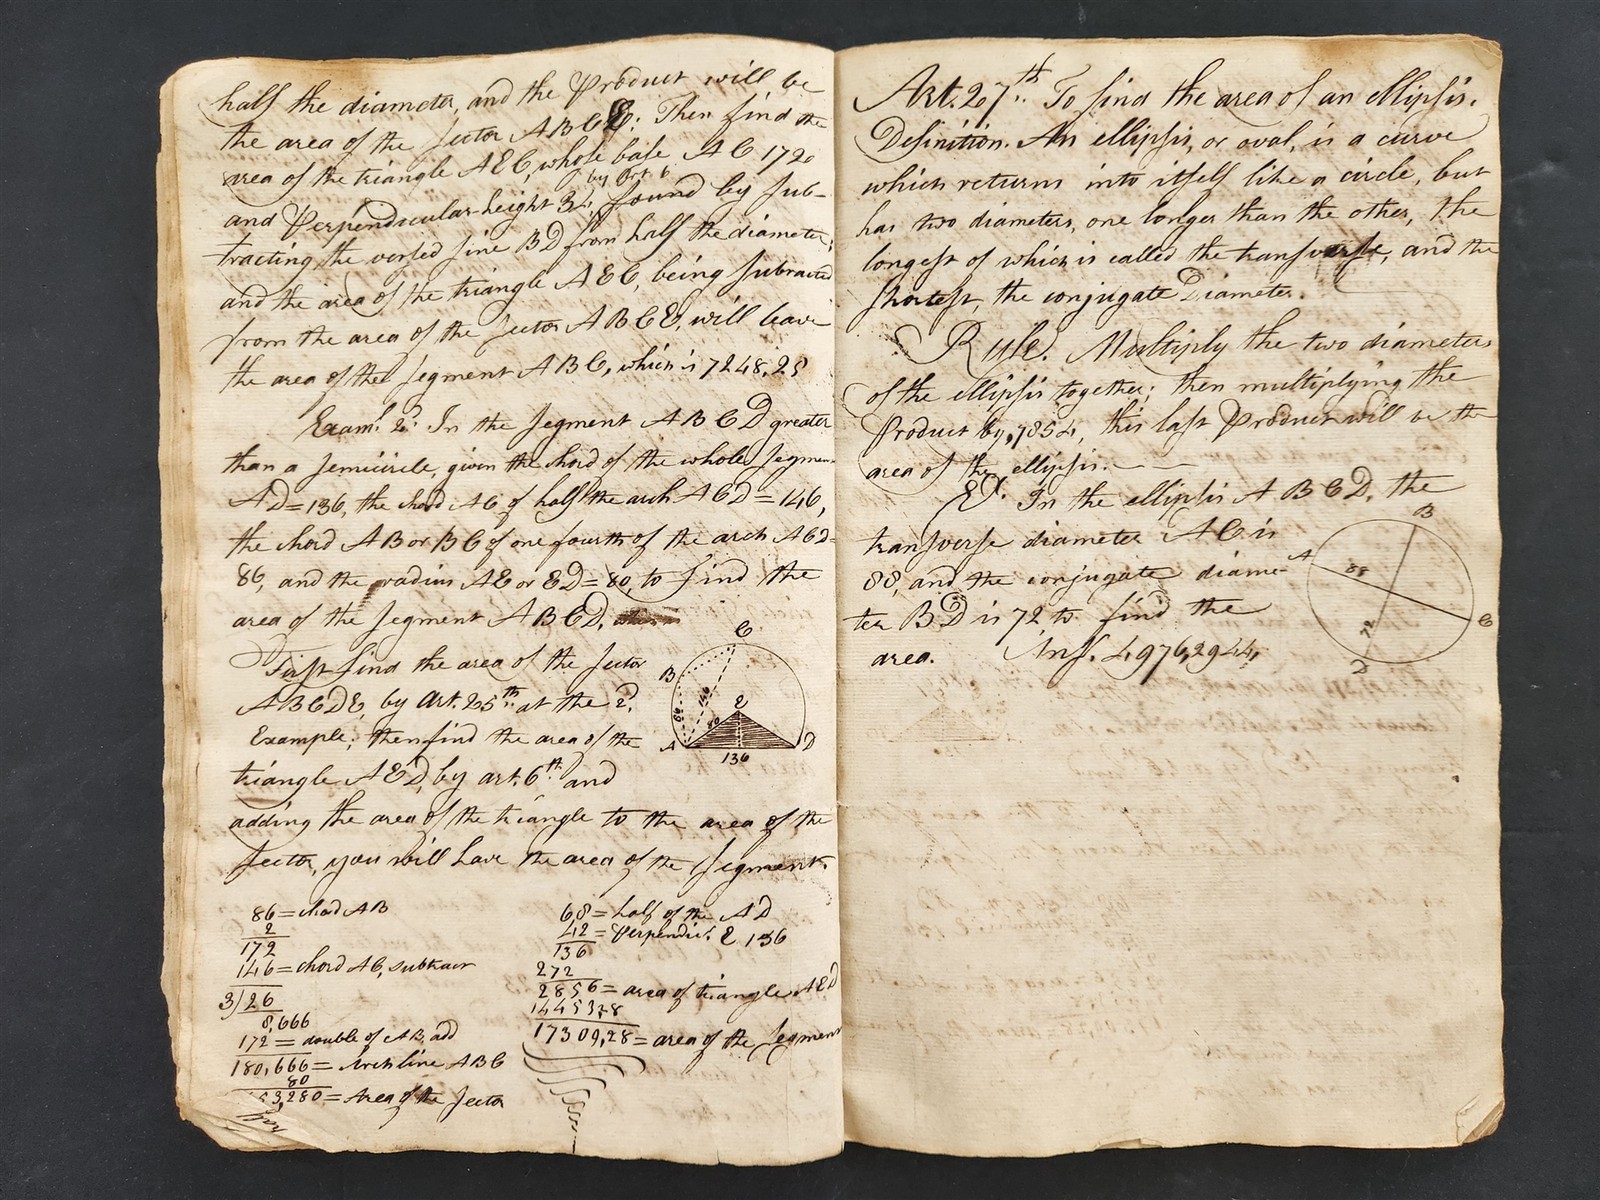 half the diameter, and the Product will be
the area of the sector ABCE: Then find the
area of the triangle AEC, whose base AC 172
by Art 6
and Perpendicular height 34, found by sub-
tracting the versed sine BD from half the diameter;
and the area of the triangle AEC, being subtracted
from the area of the sector ABCE, will leave
the area of the segment ABC, which is 7248,25
Exam. 2. In the segment ABCD greater
than a semicircle, given the chord of the whole segment
AD=136, the chord AC of half the arch ACD=146,
the chord AB or BC of one fourth of the arch ACD=
86, and the radius AE or ED=80, to find the
area of the segment ABCD,
First find the area of the sector
ABCDE, by Art. 25th at the 2d.
Example; then find the area of the
triangle AED, by art. 6th and
adding the area of the triangle to the area of the
sector, you will have the area of the segment.
C
B
86
146
E
80
A
D
136
86=chord AB
2
172
146=chord AC, subtract
3)26
8,666
172=double of AB, add
180,666=Arch line ABC
80
53,280=Area of the sector
68=half of the AD
42=Perpendic. E 136
136
272
2856=area of triangle AED
14453,28
17309,28=area of the segment
Art. 27th. To find the area of an ellipsis.
Definition. An ellipsis, or oval, is a curve
which returns into itself like a circle, but
has two diameters, one longer than the other, the
longest of which is called the transverse, and the
shortest, the conjugate Diameter.
Rule. Multiply the two diameters
of the ellipsis together; then multiplying the
Product by ,7854, this last Product will be the
area of the ellipsis.
Ex. In the ellipsis ABCD, the
transverse diameter AC is
88, and the conjugate diame-
ter BD is 72 to find the
area. Ans. 4976,2944,
B
A
88
C
72
D